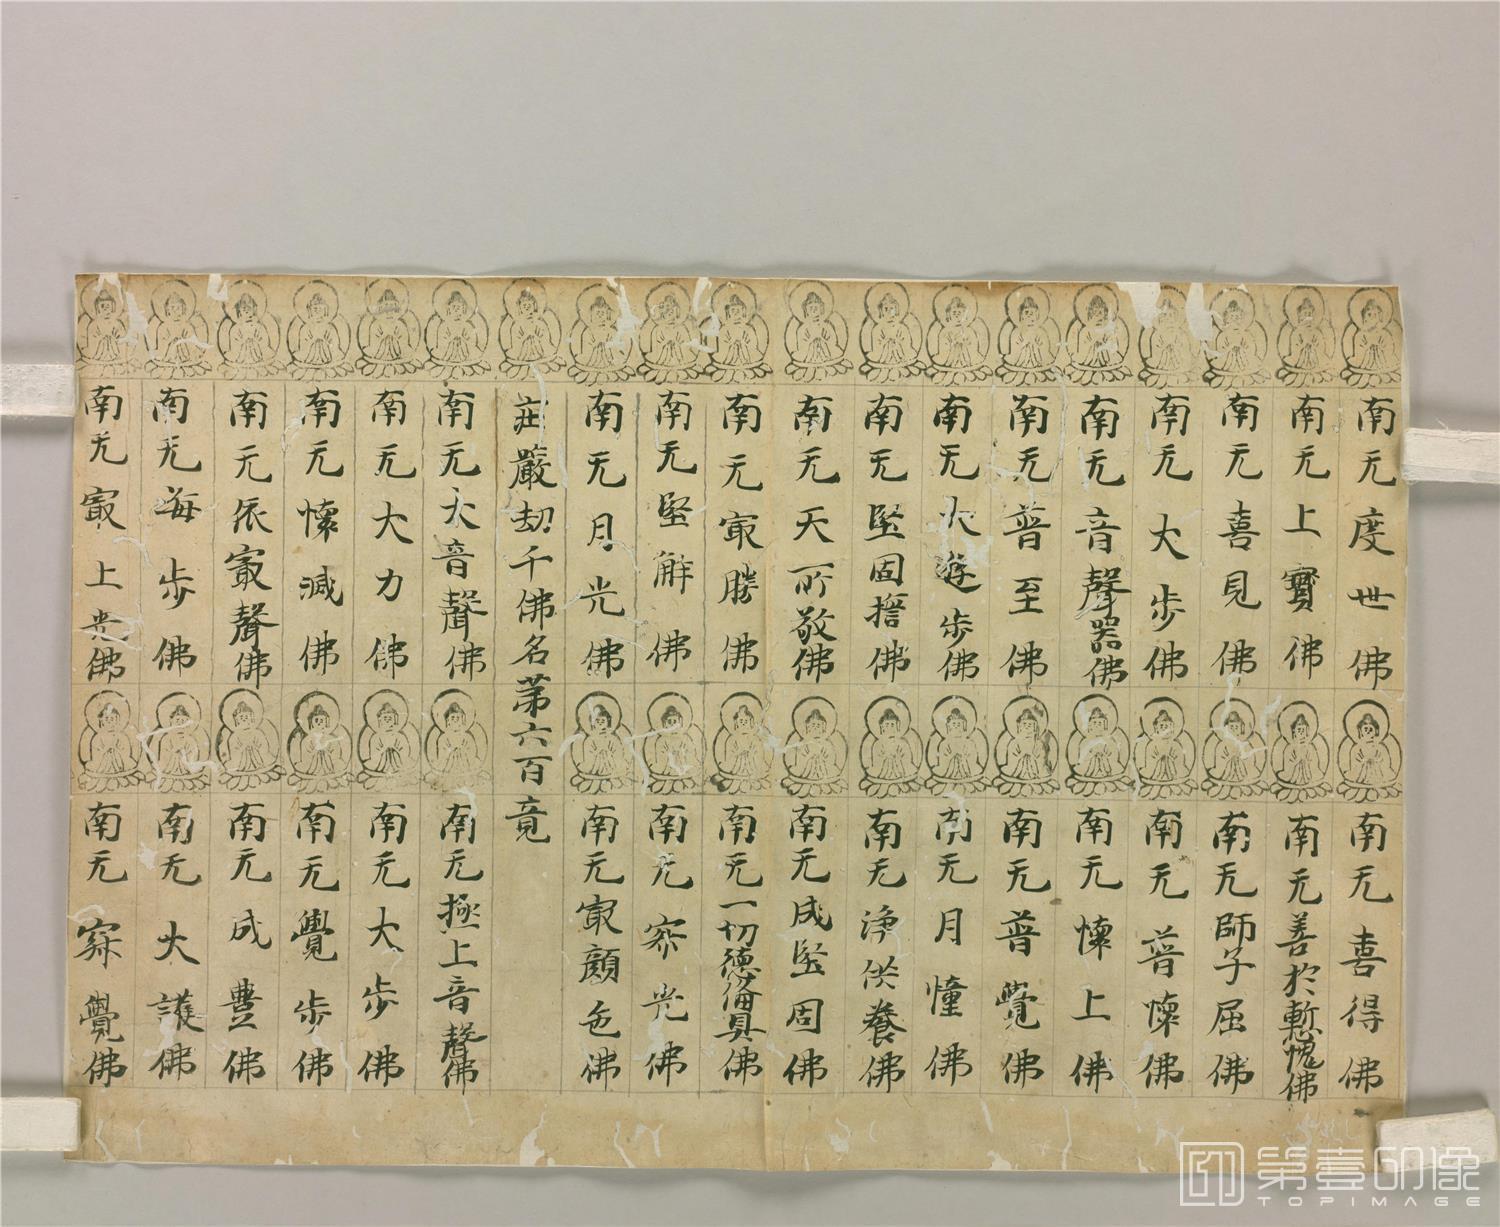 南无度世佛
南无上寶佛
南无喜見佛
南无大步佛
南无音聲器佛
南无普至佛
南无大遊步佛
南无堅固捨佛
南无天所敬佛
南无最勝佛
南无堅解佛
南无月光佛
莊嚴劫千佛名第六百竟
南无大音聲佛
南无大力佛
南无懷滅佛
南无依最聲佛
南无海步佛
南无最上光佛
南无喜得佛
南无善於慙愧佛
南无師子屈佛
南无普懷佛
南无懷上佛
南无普覺佛
南无月幢佛
南无淨供養佛
南无成堅固佛
南无一切德俻具佛
南无寂光佛
南无最顏色佛
南无極上音聲佛
南无大步佛
南无覺步佛
南无成豐佛
南无大護佛
南无寂覺佛
第壹印像
TOPIMAGE